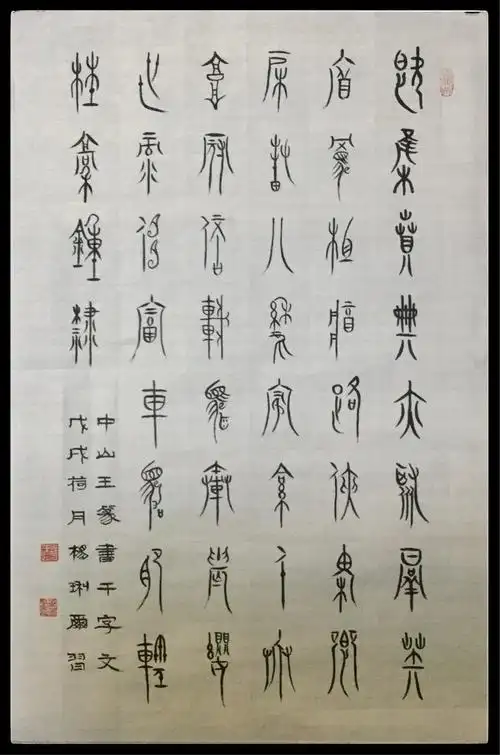 既集墳典亦聚群英
府羅將相路俠槐卿
戶封八縣家給千兵
高冠陪輦驅轂振纓
世祿侈富車駕肥輕
杜稾鍾隸
中山王篆書千字文
戊戌荷月楊琍爾習